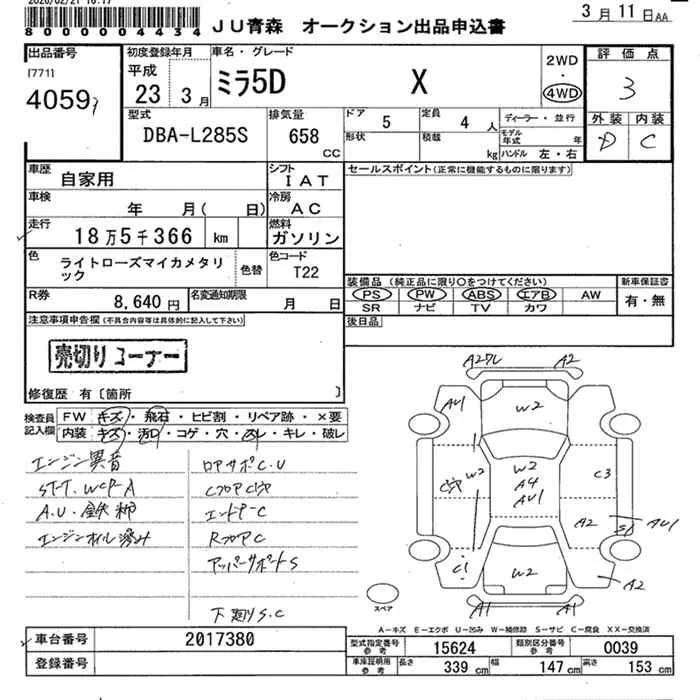 2020/02/21 16:17
80000004434
JU青森 オークション出品申込書
3月11日AA
出品番号
[771]
4059
初度登録年月
平成
23 3月
車名・グレード
ミラ5D X
2WD
・
4WD
評価点
3
外装 内装
D C
型式
DBA-L285S
排気量
658
CC
ドア 5
定員 4 人
形状
積載 kg
ディーラー・並行
モデル年式 年
ハンドル 左・右
車歴
自家用
シフト
IAT
車検
年 月( 日)
冷房
AC
走行
18万5千366 km
燃料
ガソリン
色
ライトローズマイカメタリ
ック
色替
色コード
T22
R券
8,640円
名変通知期限
月 日
セールスポイント(正常に機能するものに限ります)
装備品(純正品に限り○をつけてください)
PS PW ABS エアB AW
SR ナビ TV カワ
新車保証書
有・無
後日品
注意事項申告欄(不具合内容等は具体的に記入して下さい)
売切りコーナー
修復歴 有〔箇所 〕
検査員
記入欄
FW キズ・飛石・ヒビ割・リペア跡・×要
内装 キズ・汚れ・コゲ・穴・スレ・キレ・破レ
エンジン異音
A.U.鉄粉
エンジンオイル滲み
ロアサポC.U
CフロアC穴
エンドP-C
RフロアC
アッパーサポートS
下廻りS.C
A2 A2
AU1
W2
W2
C穴 W2
A4
AU1
C3
A2
S1 AU1
C1
W2
A2
A1 A1
スペア
A−キズ E−エクボ U−凹み W−補修跡 S−サビ C−腐食 XX−交換済
車台番号
2017380
登録番号
型式指定番号
参考
15624
類別区分番号
参考
0039
車庫証明用
参考
長さ 339 cm
幅 147 cm
高さ 153 cm